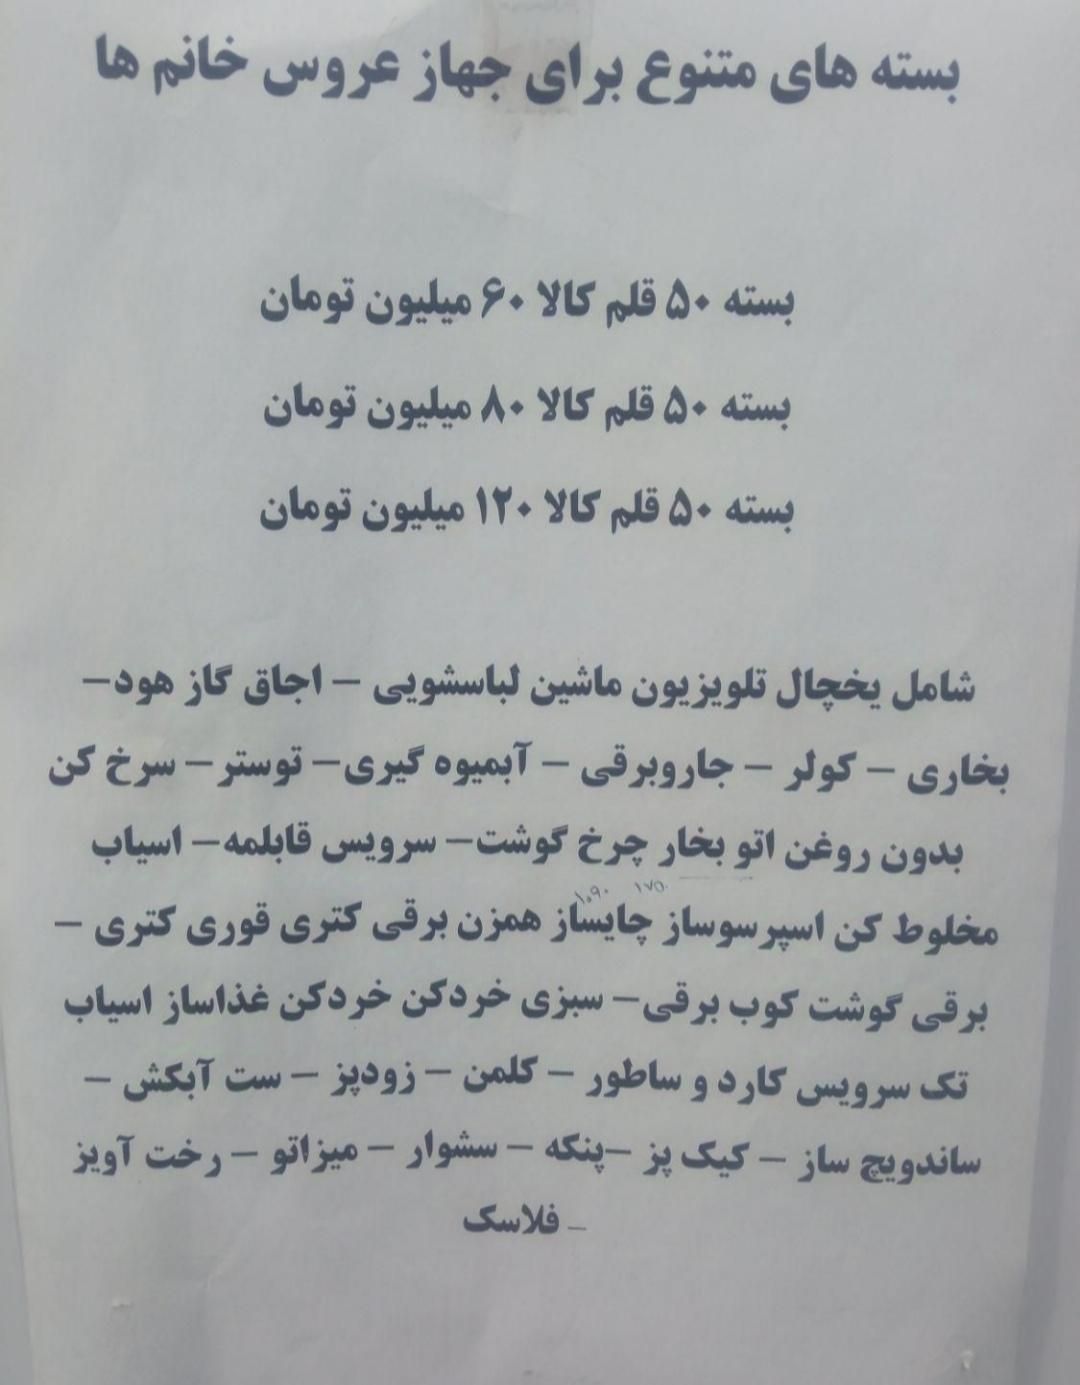 بسته های متنوع برای جهاز عروس خانم ها
بسته ۵۰ قلم کالا ۶۰ میلیون تومان
بسته ۵۰ قلم کالا ۸۰ میلیون تومان
بسته ۵۰ قلم کالا ۱۲۰ میلیون تومان
شامل یخچال تلویزیون ماشین لباسشویی – اجاق گاز هود–
بخاری – کولر – جاروبرقی – آبمیوه گیری– توستر– سرخ کن
بدون روغن اتو بخار چرخ گوشت– سرویس قابلمه– اسیاب
۱۷۵۰ ۱۰۹۰
مخلوط کن اسپرسوساز چایساز همزن برقی کتری قوری کتری –
برقی گوشت کوب برقی– سبزی خردکن خردکن غذاساز اسیاب
تک سرویس کارد و ساطور – کلمن – زودپز – ست آبکش –
ساندویچ ساز – کیک پز –پنکه – سشوار – میزاتو – رخت آویز
– فلاسک